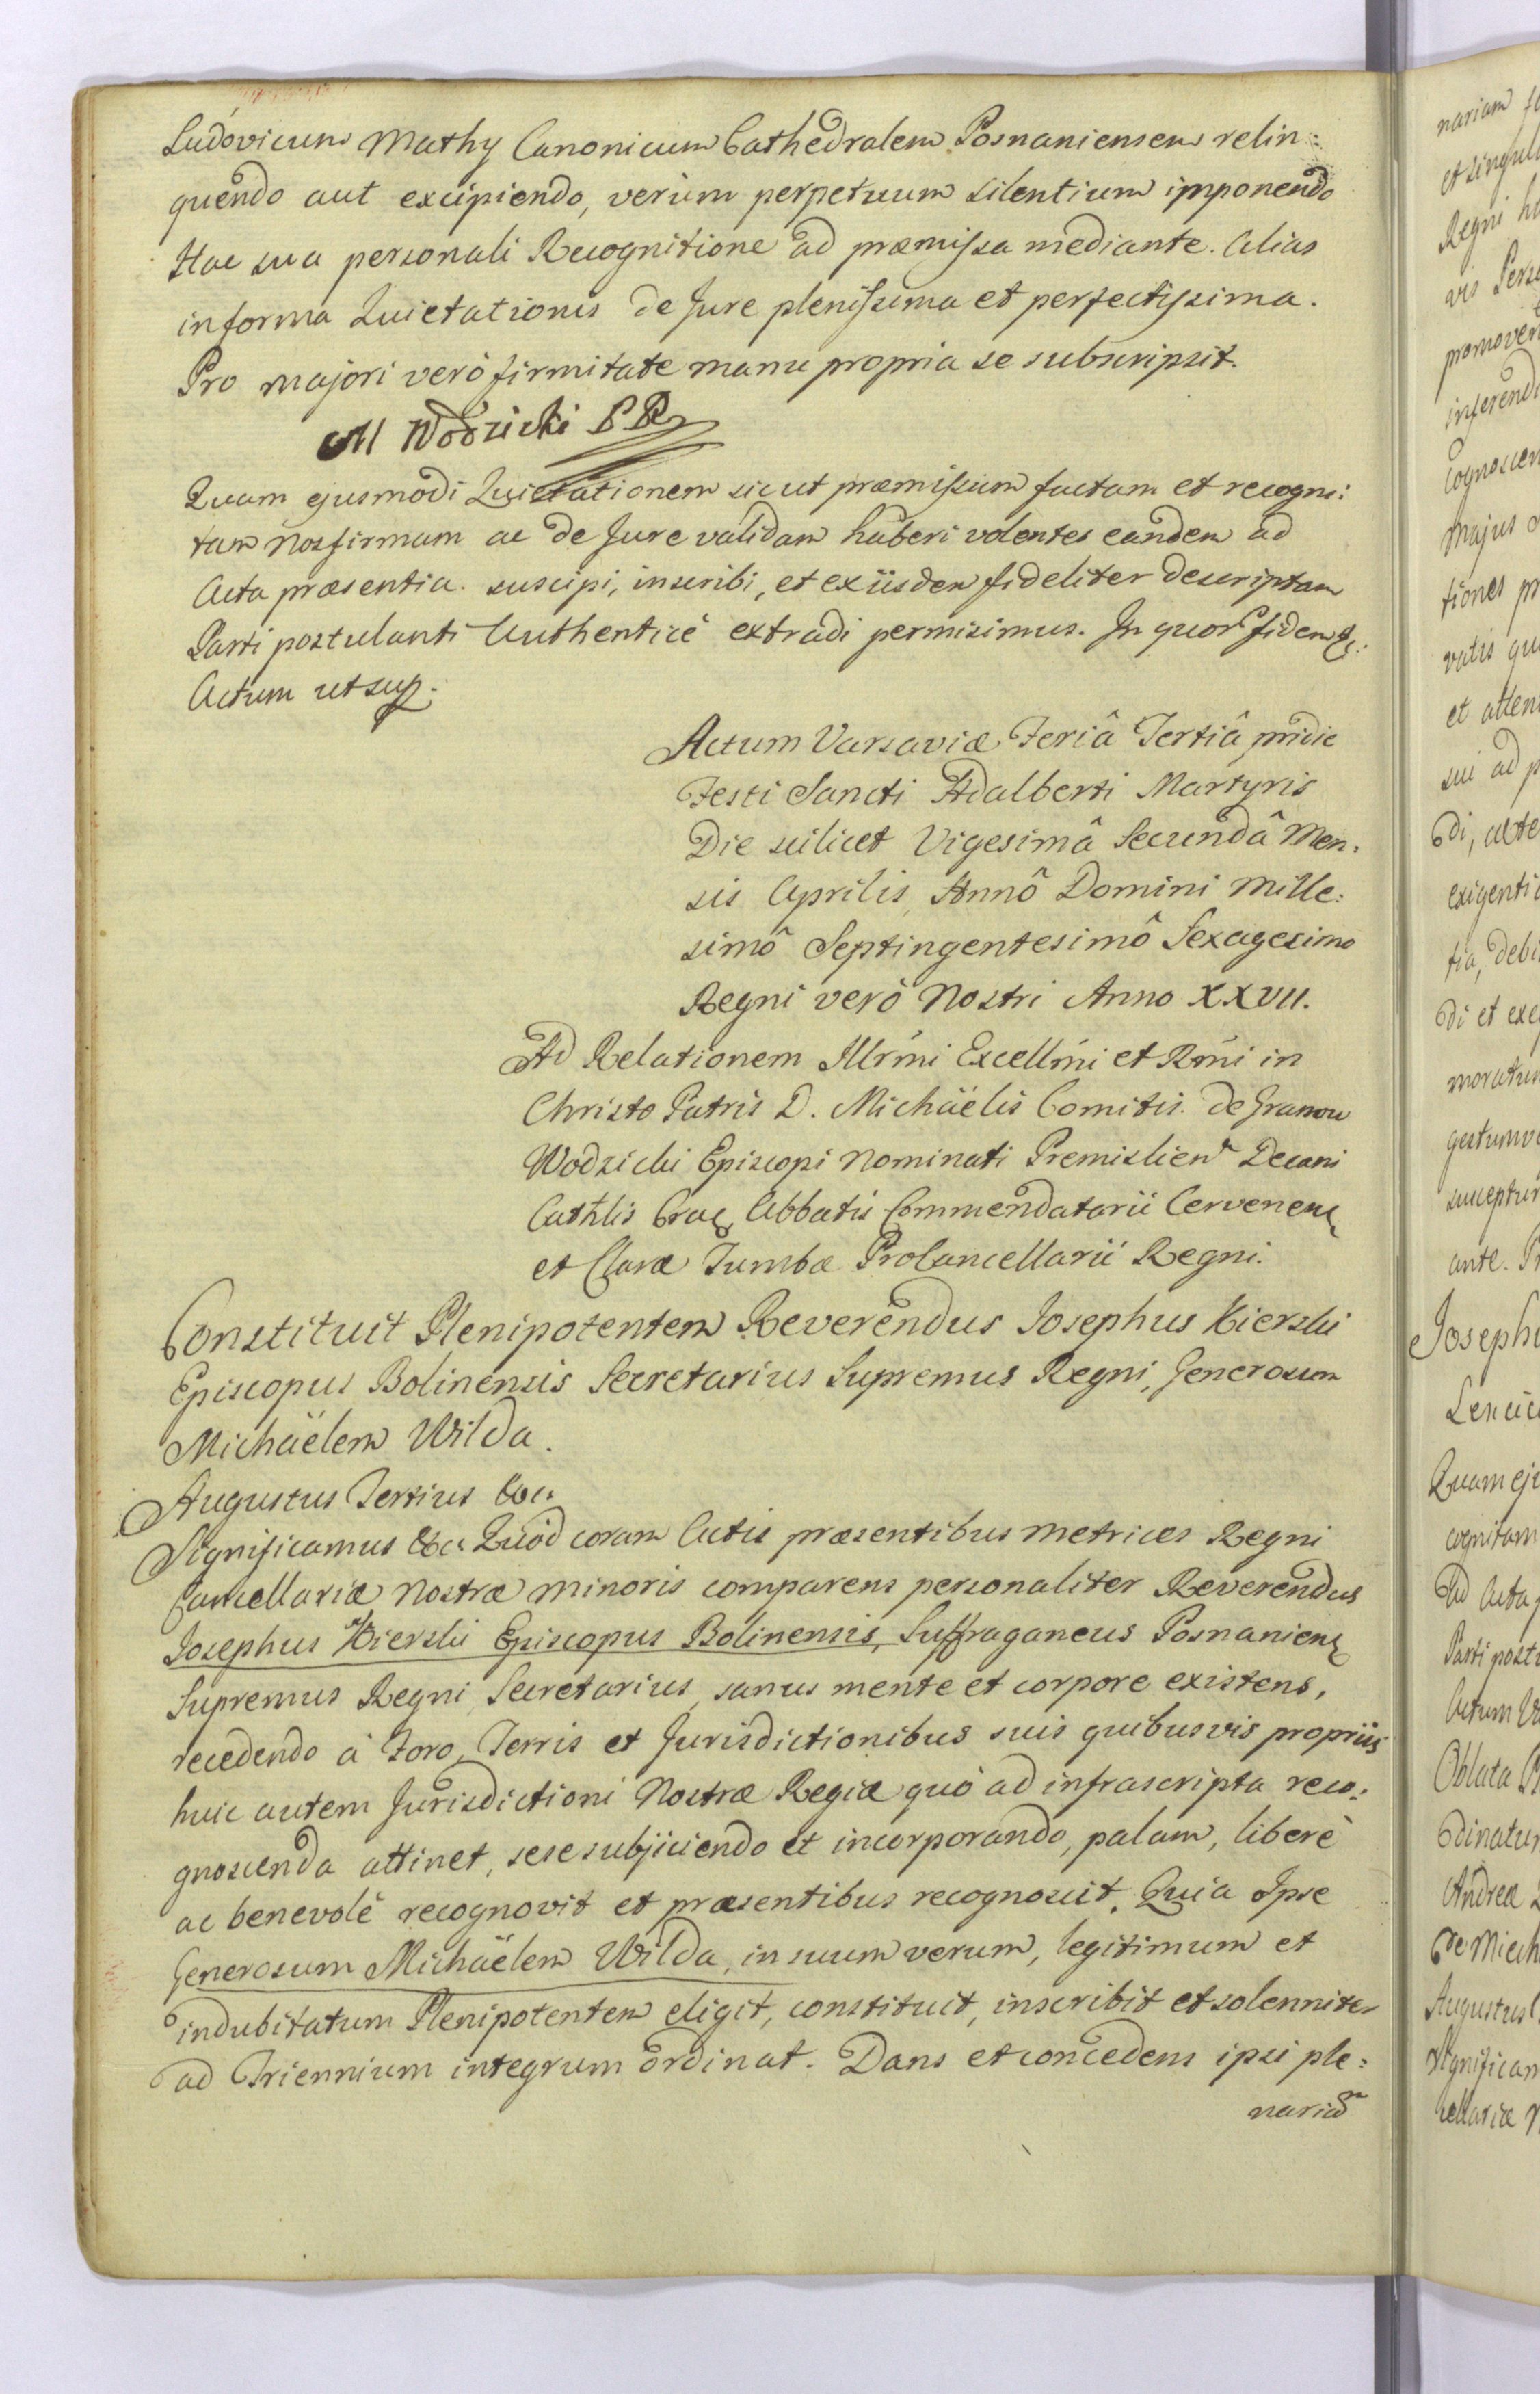 Ludovicum Mathy Canonicum Cathedralem Posnaniensem relin:
quendo aut excipiendo, verùm perpetuum silentium imponendo
Hac sua personali Recognitione ad præmissa mediante. Alias
in forma Quietationis de Jure plenissima et perfectissima.
Pro majori verò firmitate manu propria se subscripsit.
M Wodzicki PR
Quam ejusmodi Quietationem sicut præmissum factam et recogni:
tam Nos firmam ac de Jure validam haberi volentes eandem ad
Acta præsentia suscipi, inscribi, et ex iisdem fideliter descriptam
Parti postulanti Authenticè extradi permisimus. In quor fidem &:
Actum ut sup:
Actum Varsaviæ Feriâ Tertiâ pridie
Festi Sancti Adalberti Martyris
Die scilicet Vigesimâ Secundâ Men:
sis Aprilis, Annô Domini Mille:
simô Septingentesimô Sexagesimo
Regni verò Nostri Anno XXVII.
Ad Relationem Illrmi Excellmi et Rmi in
Christo Patris D. Michäelis Comitis de Granow
Wodzicki Episcopi Nominati Premislien Decani
Cathlis Crac, Abbatis Commendatarii Cervenens
et Claræ Tumbæ Procancellarii Regni.
Constituit Plenipotentem Reverendus Josephus Kierski
Episcopus Bolinensis Secretarius Supremus Regni, Generosum
Michäelem Wilda.
Augustus Tertius &c:
Significamus &c: Quòd coram Actis præsentibus Metrices Regni
Cancellariæ Nostræ Minoris comparens personaliter Reverendus
Josephus Kierski Episcopus Bolinensis, Suffraganeus Posnaniens
Supremus Regni Secretarius, sanus mente et corpore existens,
recedendo à Foro, Terris et Jurisdictionibus suis quibusvis propriis
huic autem Jurisdictioni Nostræ Regiæ quò ad infrascripta reco:
gnoscenda attinet, sese subjiciendo et incorporando, palam, liberè
ac benevolè recognovit et præsentibus recognoscit. Quia Ipse
Generosum Michäelem Wilda, in suum verum, legitimum et
indubitatum Plenipotentem eligit, constituit, inscribit et solenniter
ad Triennium integrum ordinat. Dans et concedens ipsi ple:
nariam
nariam
et singul
Regni ha
vis Perso
promoven
inferend
cognoscen
majus
tiones pr
vatis qu
et atten
sui ad p
di, acte
exigenti
tia, debi
di et exe
moratum
gestumv
susceptur
ante. Pr
Josephu
Lencic
Quam eju
cognitam
Ad Acta
Parti post
Actum Va
Oblata
dinatur
Andreæ
de Miech
Augustus
Significam
cellariæ N